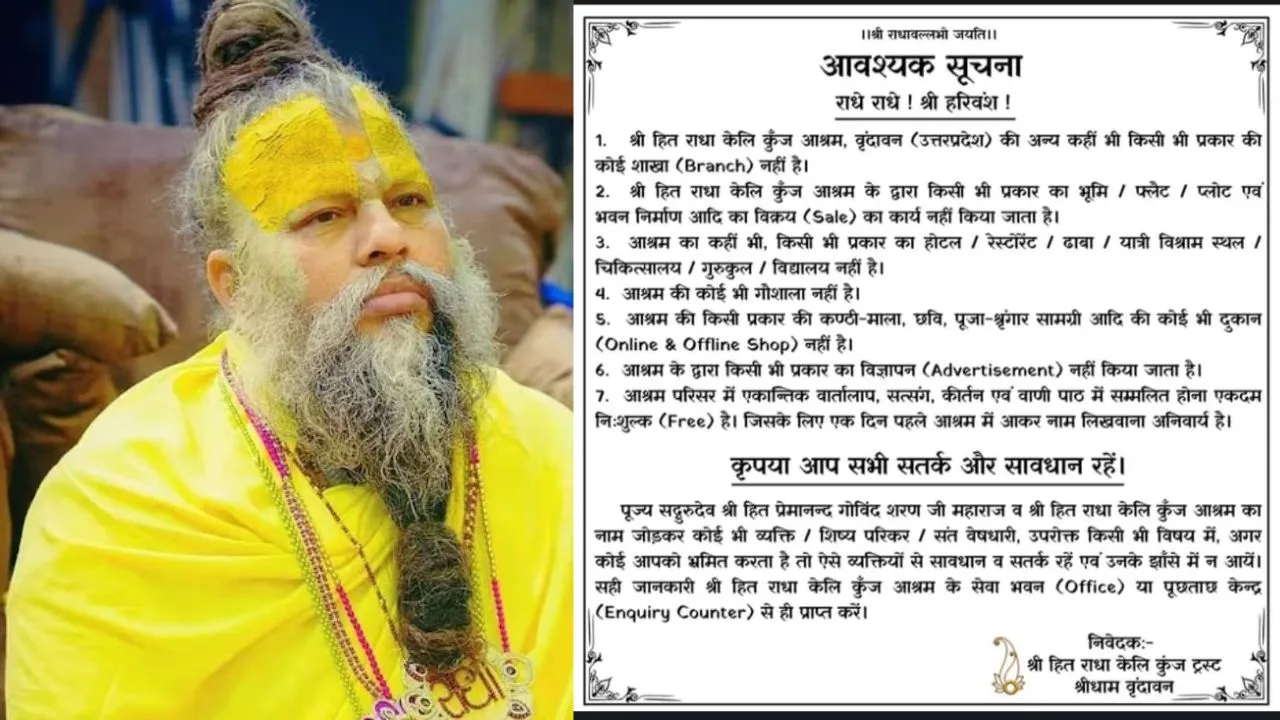 ।।श्री राधावल्लभो जयति।।
आवश्यक सूचना
राधे राधे ! श्री हरिवंश !
1. श्री हित राधा केलि कुँज आश्रम, वृंदावन (उत्तरप्रदेश) की अन्य कहीं भी किसी भी प्रकार की
कोई शाखा (Branch) नहीं है।
2. श्री हित राधा केलि कुँज आश्रम के द्वारा किसी भी प्रकार का भूमि / फ्लैट / प्लोट एवं
भवन निर्माण आदि का विक्रय (Sale) का कार्य नहीं किया जाता है।
3. आश्रम का कहीं भी, किसी भी प्रकार का होटल / रेस्टोरेंट / ढाबा / यात्री विश्राम स्थल /
चिकित्सालय / गुरुकुल / विद्यालय नहीं है।
4. आश्रम की कोई भी गौशाला नहीं है।
5. आश्रम की किसी प्रकार की कण्ठी-माला, छवि, पूजा-श्रृंगार सामग्री आदि की कोई भी दुकान
(Online & Offline Shop) नहीं है।
6. आश्रम के द्वारा किसी भी प्रकार का विज्ञापन (Advertisement) नहीं किया जाता है।
7. आश्रम परिसर में एकान्तिक वार्तालाप, सत्संग, कीर्तन एवं वाणी पाठ में सम्मलित होना एकदम
निःशुल्क (Free) है। जिसके लिए एक दिन पहले आश्रम में आकर नाम लिखवाना अनिवार्य है।
कृपया आप सभी सतर्क और सावधान रहें।
पूज्य सद्गुरुदेव श्री हित प्रेमानन्द गोविंद शरण जी महाराज व श्री हित राधा केलि कुँज आश्रम का
नाम जोड़कर कोई भी व्यक्ति / शिष्य परिकर / संत वेषधारी, उपरोक्त किसी भी विषय में, अगर
कोई आपको भ्रमित करता है तो ऐसे व्यक्तियों से सावधान व सतर्क रहें एवं उनके झाँसे में न आयें।
सही जानकारी श्री हित राधा केलि कुँज आश्रम के सेवा भवन (Office) या पूछताछ केन्द्र
(Enquiry Counter) से ही प्राप्त करें।
निवेदक:-
श्री हित राधा केलि कुंज ट्रस्ट
श्रीधाम वृंदावन
राधा